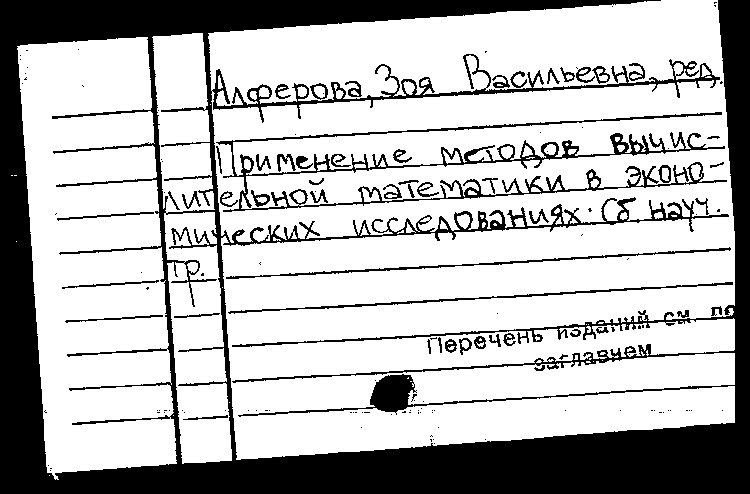 Алферова, Зоя Васильевна, ред.
Применение методов вычис-
лительной математики в эконо-
мических исследованиях: Сб. науч.
тр.
Перечень изданий см. по
заглавием